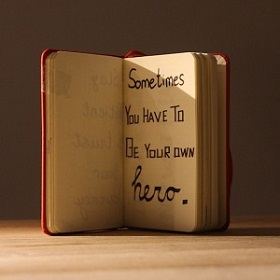 Sometimes
You HAVE TO
BE YOUR OWN
hero.